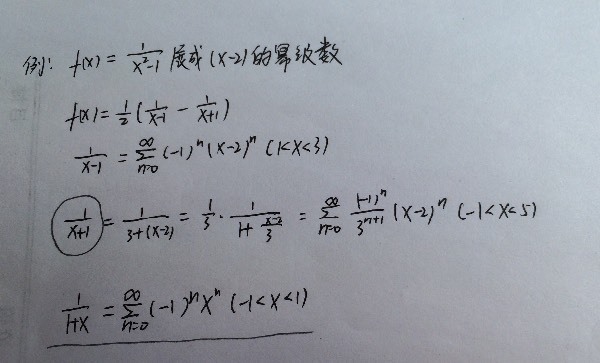 例: f(x) = \frac{1}{x^2-1} 展成 (x-2) 的幂级数
f(x) = \frac{1}{2} ( \frac{1}{x-1} - \frac{1}{x+1} )
\frac{1}{x-1} = \sum_{n=0}^{\infty} (-1)^n (x-2)^n (1<x<3)
\frac{1}{x+1} = \frac{1}{3+(x-2)} = \frac{1}{3} \cdot \frac{1}{1+\frac{x-2}{3}} = \sum_{n=0}^{\infty} \frac{(-1)^n}{3^{n+1}} (x-2)^n (-1<x<5)
\frac{1}{1+x} = \sum_{n=0}^{\infty} (-1)^n x^n (-1<x<1)